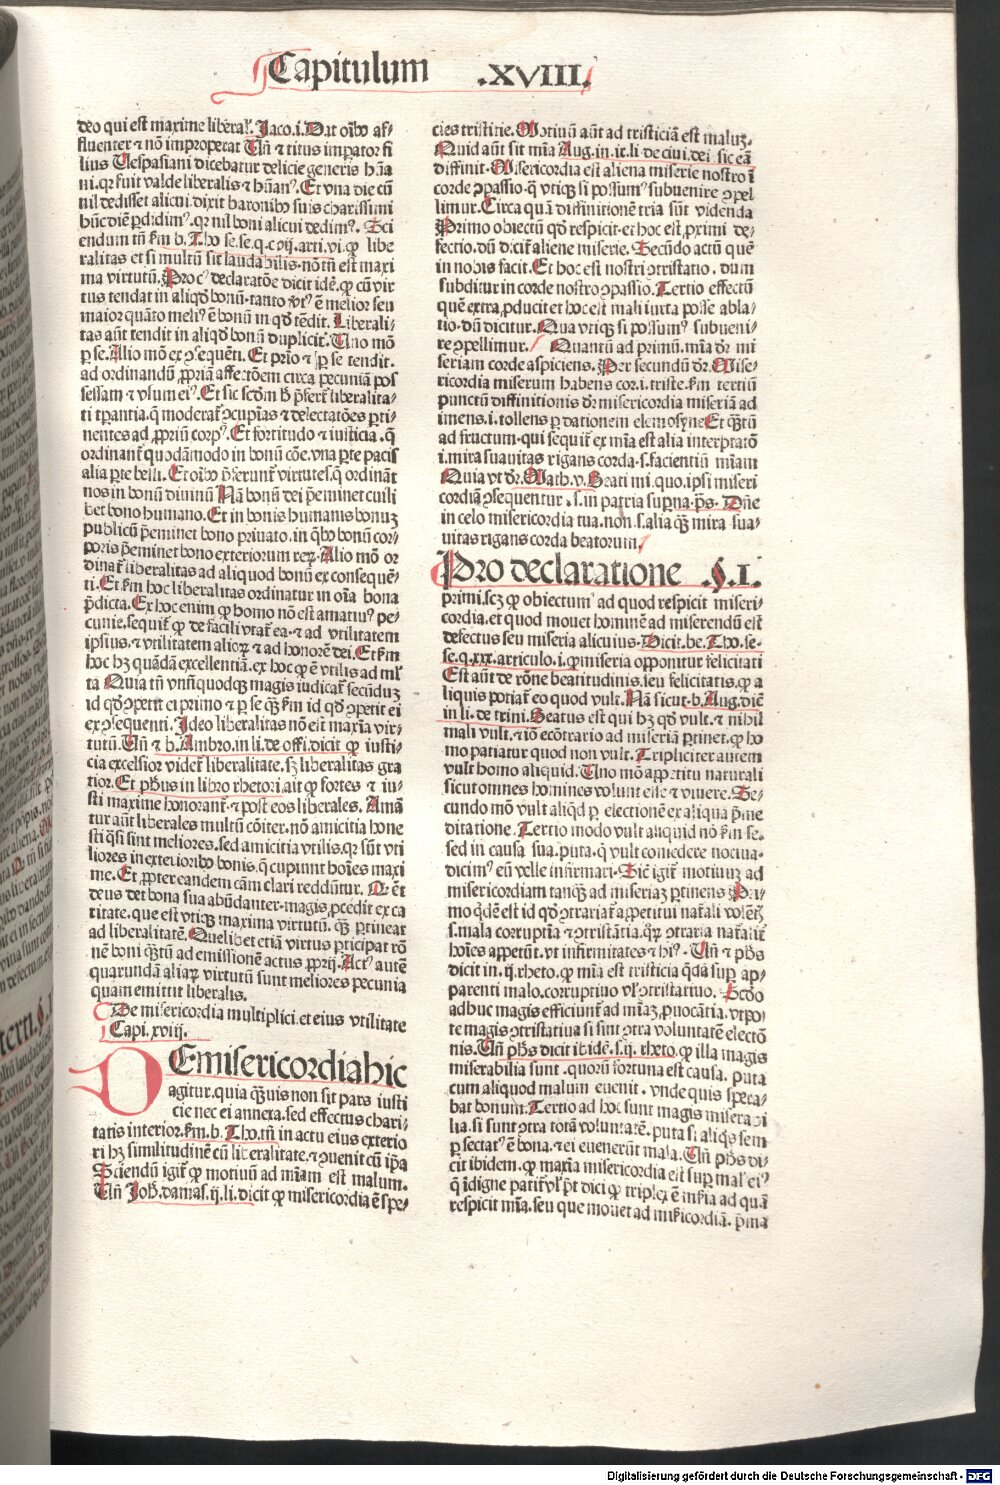 Capitulum .XVIII.
deo qui est maxime liberal'. Jaco.i. Dat oībꝰ af⸗
fluenter ⁊ nō improperat Un̄ ⁊ titus imꝑator fi
lius Uespasiani dicebatur delicie generis hūa
ni. qꝛ fuit valde liberalis ⁊ hūanꝰ. Et vna die cū
nil dedisset alicui. dixit baronibꝰ suis charissimi
hūc diē ꝑdidimꝰ. qꝛ nil boni alicui dedimꝰ. Sci
endum tn̄ ẜm b. Tho se.se.q.cxvij.arti.vi. ꝙ libe
ralitas et si multū sit laudabilis. nō tn̄ est maxi
ma virtutū. Pro cꝰ declaratōe dicit idē. ꝙ cū vir
tus tendat in aliqd̄ bonū. tanto v̄tꝰ ē melior seu
maior quāto meliꝰ ē bonū in qd̄ tēdit. Liberali⸗
tas aūt tendit in aliqd̄ bonū duplicit̄. Uno mō
ꝑ se. Alio mō ex ꝯsequēti. Et prīo ⁊ ꝑ se tendit.
ad ordinandū ꝓpriā affectōem circa pecuniā pos
sessam ⁊ vsum eiꝰ. Et sic scd̄m h̄ p̄fert̄ liberalita⸗
ti tꝑantia. q̄ moderat̄ ꝯcupīas ⁊ delectatōes ꝑti⸗
nentes ad ꝓpriū corpꝰ. Et fortitudo ⁊ iusticia. q̄
ordinant̄ quodāmodo in bonū cōe. vna ꝑte pacis
alia ꝑte belli. Et oībꝰ p̄ferunt̄ virtutes. q̄ ordināt
nos in bonū diuinū Nā bonū dei p̄eminet cuili
bet bono humano. Et in bonis humanis bonuꝫ
publicū p̄eminet bono priuato. in qͥbꝰ bonū cor⸗
poris p̄eminet bono exteriorum reꝝ. Alio mō or
dinat̄ liberalitas ad aliquod bonū ex consequē⸗
ti. Et ẜm hoc liberalitas ordinatur in oīa bona
p̄dicta. Ex hoc enim ꝙ homo nō est amatiuꝰ pe⸗
cunie. sequit̄ ꝙ de facili vtat̄ ea. ⁊ ad vtilitatem
ipsius. ⁊ vtilitatem alioꝝ ⁊ ad honorē dei. Et ẜm
hoc hꝫ quādā excellentiā. ex hoc ꝙ ē vtilis ad ml̄
ta Quia tn̄ vnūquodqꝫ magis iudicat̄ secūduꝫ
id qd̄ ꝯpetit ei primo ⁊ ꝑ se qꝫ ẜm id qd̄ ꝯpetit ei
ex ꝯsequenti. Ideo liberalitas nō est maxīa vir⸗
tutū. Un̄ ⁊ b. Ambro. in li. de offi. dicit ꝙ iusti⸗
cia excelsior videt̄ liberalitate. sꝫ liberalitas gra
tior. Et ph̄us in libro rhetori. ait ꝙ fortes ⁊ iu⸗
sti maxime honorant̄. ⁊ post eos liberales. Amā
tur aūt liberales multū cōiter. nō amicitia hone
sti qͣsi sint meliores. sed amicitia vtilis. qꝛ sūt vti
liores in exterioribꝰ bonis. q̄ cupiunt hoīes maxi
me. Et ꝓpter eandem cām clari reddūtur.
deus det bona sua abūdanter. magis ꝓcedit ex ca
ritate. que est vtiqꝫ maxima virtutū. qꝫ ꝑtineat
ad liberalitatē. Quelibet etiā virtus ꝑticipat rō
nē boni qꝫtū ad emissionē actus ꝓprij. Actꝰ autē
quarundā aliaꝝ virtutū sunt meliores pecunia
quam emittit liberalis.
De misericordia multiplici. et eius vtilitate
Capi. xviij.
DE misericordia hic
agitur. quia qꝫuis non sit pars iusti
cie nec ei annexa. sed effectus chari⸗
tatis interior. ẜm. b. Tho. tn̄ in actu eius exterio
ri hꝫ similitudinē cū liberalitate. ⁊ ꝯuenit cū ip̄a
Sciendū igit̄ ꝙ motiuū ad mīam est malum.
Un̄ Joh̄. damas. ij. li. dicit ꝙ misericordia ē spe⸗
cies tristicie. Motiuū aūt ad tristiciā est maluꝫ.
Quid aūt sit mīa Aug. in. ix. li. de ciui. dei. sic eā
diffinit. Misericordia est aliena miserie nostro ī
corde ꝯpassio. q̄ vtiqꝫ si possumꝰ subuenire ꝯpel
limur. Circa quā diffinitionē tria sūt videnda
Primo obiectū qd̄ respicit. et hoc est ꝓximi de⸗
fectio. dū dicit̄ aliene miserie. Secūdo actū quē
in nobis facit. Et hoc est nostri ꝯtristatio. dum
subditur in corde nostro ꝯpassio. Tertio effectū
quē extra ꝓducit et hoc est mali iuxta posse abla⸗
tio. dū dicitur. Qua vtiqꝫ si possumꝰ subueni⸗
re ꝯpellimur. Quantū ad primū. mīa dr̄ mi
seriam corde aspiciens. Per secundū dr̄. Mise⸗
ricordia miserum habens cor. i. triste. ẜm tertiū
punctū diffinitionis dr̄ misericordia miseriā ad
imens. i. tollens ꝑ dationem elemosyne Et qꝫtū
ad fructum. qui sequit̄ ex mīa est alia interp̄tatō
.i. mira suauitas rigans corda. s. facientiū mīam
Quia vt dr̄. Math. v. Beati mi. quo. ipsi miseri
cordiā ꝯsequentur. s. in patria suꝑna. ps̄. Dn̄e
in celo misericordia tua. non. s. alia qꝫ mira sua⸗
uitas rigans corda beatorum.
Pro declaratione .§.I.
primi. scꝫ ꝙ obiectum ad quod respicit miseri⸗
cordia. et quod mouet hominē ad miserendū est
defectus seu miseria alicuius. Dicit. be. Tho. se⸗
se. q. xxx. articulo. i. ꝙ miseria opponitur felicitati
Est aūt de rōne beatitudinis. seu felicitatis. ꝙ a
liquis potiat̄ eo quod vult. Nā sicut. b. Aug. dic̄
in li. de trini. Beatus est qui hꝫ qd̄ vult. ⁊ nihil
mali vult. ⁊ iō ecōtrario ad miseriā ꝑtinet. ꝙ ho
mo patiatur quod non vult. Tripliciter autem
vult homo aliquid. Uno mō appetitu naturali
sicut omnes homines volunt esse ⁊ viuere. Se⸗
cundo mō vult aliqd̄ ꝑ electionē ex aliqua p̄me
ditatione. Tertio modo vult aliquid nō ẜm se.
sed in causa sua. puta. q̄ vult comedere nociua.
dicimꝰ eū velle infirmari. Sic̄ igit̄ motiuuꝫ ad
misericordiam tanqꝫ ad miseriaꝫ ꝑtinens Pri⸗
mo qͥdē est id qd̄ ꝯtrariat̄ appetitui nat̄ali volētꝫ
.s. mala corruptīa ⁊ ꝯtristātia. qꝫ ꝯtraria nat̄alit̄
hoīes appetūt. vt infirmitates ⁊ hꝰ. Un̄ ⁊ ph̄s
dicit in. ij. rheto. ꝙ mīa est tristicia qͣdā suꝑ ap⸗
parenti malo. corruptiuo vl̓ ꝯtristatiuo. Scd̄o
adhuc magis efficiunt̄ ad mīaꝫ ꝓuocātia.
te magis ꝯtristatiua si sint ꝯtra voluntatē electō
nis. Un̄ ph̄s dicit ibidē. s. ij. rheto. ꝙ illa magis
miserabilia sunt. quorū fortuna est causa. puta
cum aliquod malum euenit. vnde quis spera⸗
bat bonum. Tertio ad hoc sunt magis miserabi
lia. si sunt ꝯtra totā voluntatē. puta si aliqͥs sem
ꝑ sectatꝰ ē bona. ⁊ ei euenerūt mala. Un̄ ph̄s di⸗
cit ibidem. ꝙ maxīa misericordia est suꝑ mal̓ eiꝰ
q̄ īdigne patit̄ vl̓ p̄t dici ꝙ triplex ē mīsia ad quā
respicit mīa. seu que mouet ad mīsicordiā. p̄ma
Digitalisierung gefördert durch die Deutsche Forschungsgemeinschaft - DFG